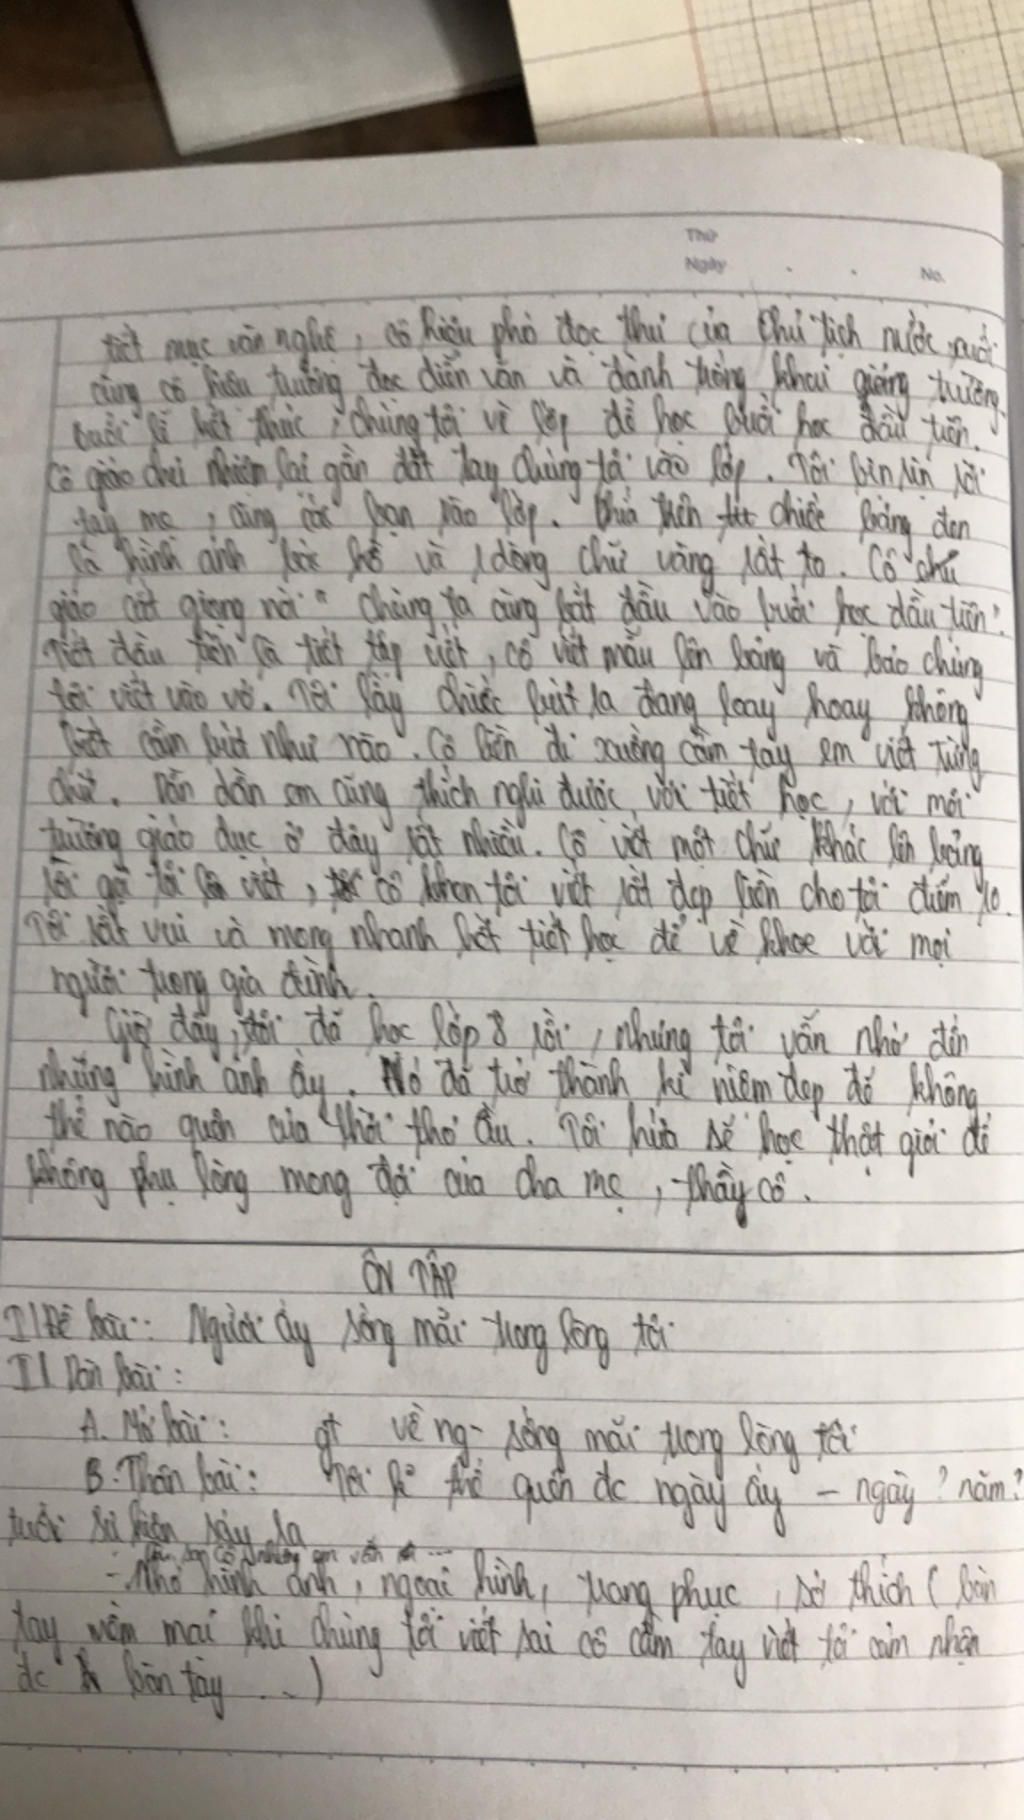 Thứ
Ngày . . No.
tiết mục văn nghệ, cô hiệu phó đọc thư của Chủ tịch nước, cuối
cùng cô hiệu trưởng đọc diễn văn và đánh trống khai giảng trường.
buổi lễ kết thúc, chúng tôi về lớp để học buổi học đầu tiên.
Cô giáo chủ nhiệm lại gần dắt tay chúng tôi vào lớp. Tôi bịn rịn rời
tay mẹ, cùng các bạn vào lớp. Phía trên chiếc bảng đen
là hình ảnh bác hồ và 1 dòng chữ vàng rất to. Cô
giáo cất giọng nói "chúng ta cùng bắt đầu vào buổi học đầu tiên".
Tiết đầu tiên là tiết tập viết, cô viết mẫu lên bảng và bảo chúng
tôi viết vào vở. Tôi lấy chiếc bút ra đang loay hoay không
biết cầm bút như nào. Cô liền đi xuống cầm tay em viết từng
chữ. Dần dần em cũng thích nghi được với tiết học, với môi
trường giáo dục ở đây rất nhiều. Cô viết một chữ khác lên bảng
rồi gọi tôi lên viết, cô khen tôi viết rất đẹp liền cho tôi điểm 10.
Tôi rất vui và mong nhanh hết tiết học để về khoe với mọi
người trong gia đình.
Giờ đây, tôi đã học lớp 8 rồi, nhưng tôi vẫn nhớ đến
những hình ảnh ấy. Nó đã trở thành kỉ niệm đẹp đẽ không
thể nào quên của thời thơ ấu. Tôi hứa sẽ học thật giỏi để
không phụ lòng mong đợi của cha mẹ, thầy cô.
ÔN TẬP
I/ Đề bài: Người ấy sống mãi trong lòng tôi
II/ Dàn bài:
A. Mở bài: gt về ng- sống mãi trong lòng tôi
B. Thân bài: Tôi k thể quên đc ngày ấy - ngày? năm?
tuổi sự kiện xảy ra
- Nhớ hình ảnh, ngoại hình, trang phục, sở thích (bàn
tay mềm mại khi chúng tôi viết sai cô cầm tay viết tôi cảm nhận
đc bàn tay ...)